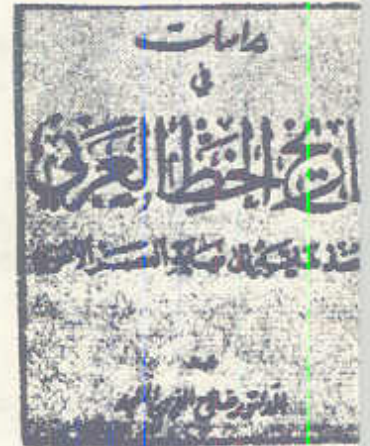 دراسات
في
تاريخ الخط العربي
منذ بدايته إلى نهاية العصر الأموي
الدكتور صلاح الدين المنجد